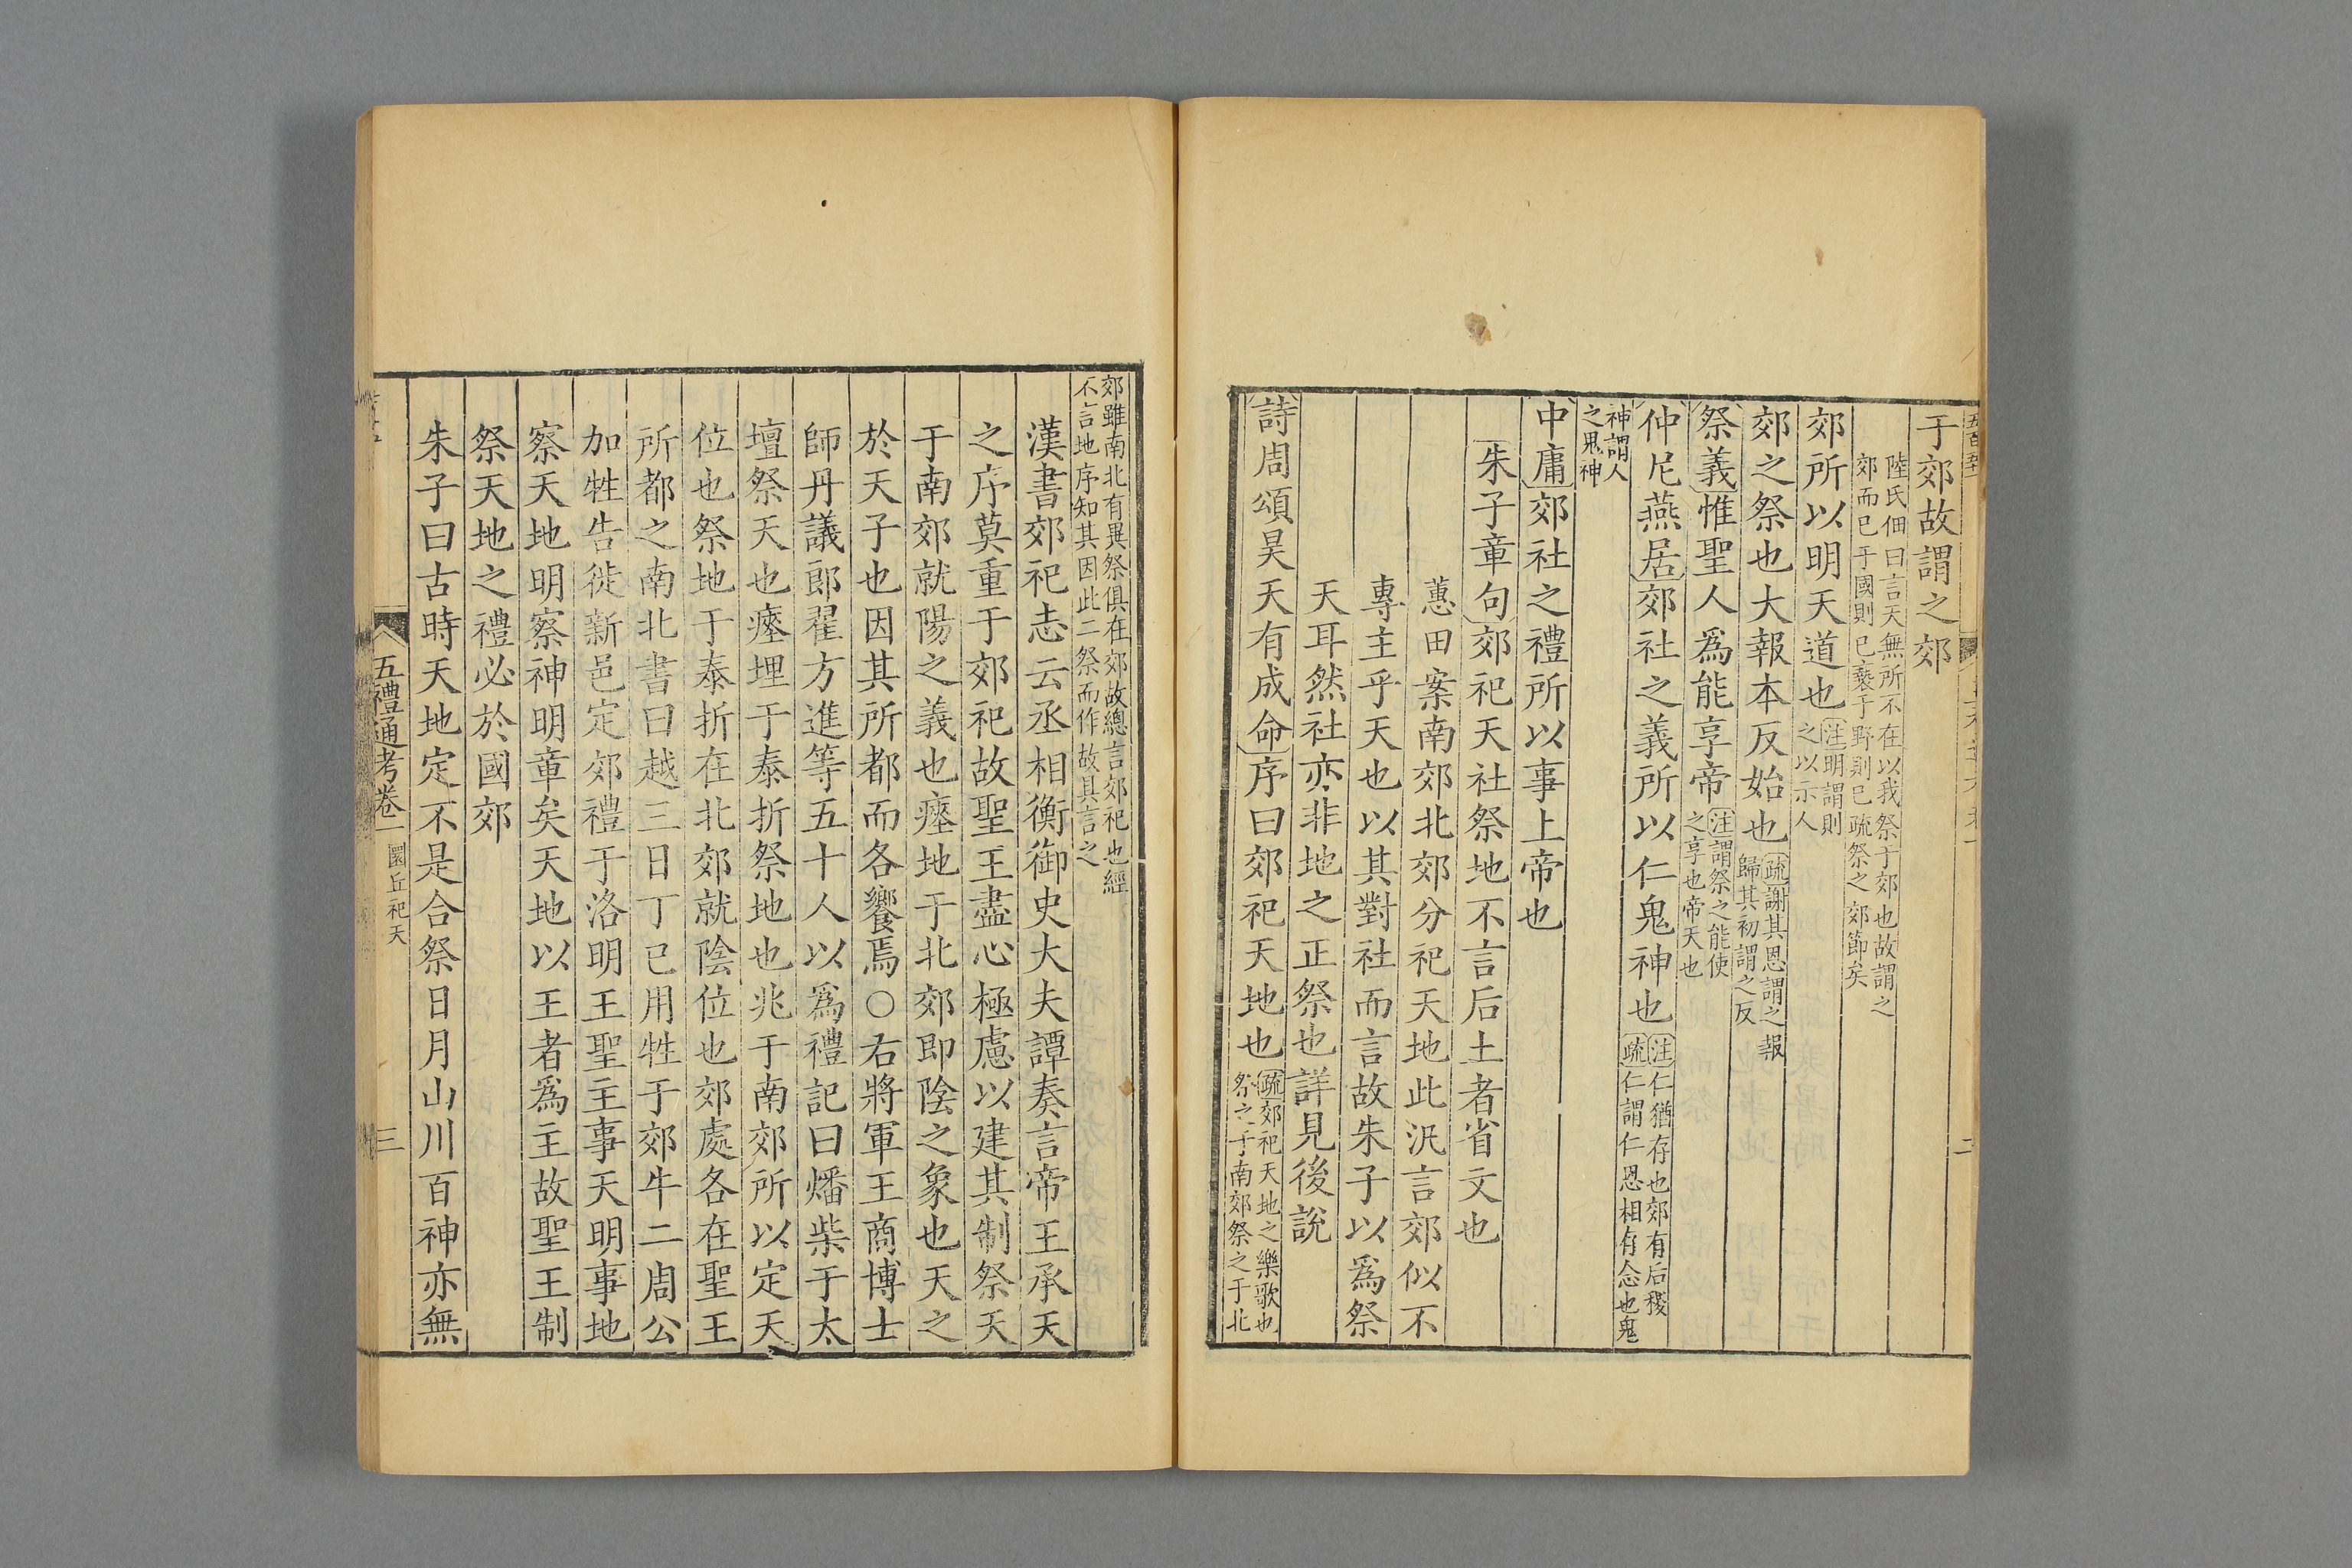 于郊故謂之郊
陸氏佃曰言天無所不在以我祭于郊也故謂之
郊而已于國則已褻于野則已疏祭之郊節矣
郊所以明天道也注明謂則
之以示人
郊之祭也大報本反始也疏謝其恩謂之報
歸其初謂之反
祭義惟聖人爲能享帝注謂祭之能使
之享也帝天也
仲尼燕居郊社之義所以仁鬼神也注仁猶存也郊有后稷
疏仁謂仁恩相存念也鬼
神謂人
之鬼神
中庸郊社之禮所以事上帝也
朱子章句郊祀天社祭地不言后土者省文也
蕙田案南郊北郊分祀天地此汎言郊似不
專主乎天也以其對社而言故朱子以爲祭
天耳然社亦非地之正祭也詳見後說
詩周頌昊天有成命序曰郊祀天地也疏郊祀天地之樂歌也
祭之于南郊祭之于北
郊雖南北有異祭俱在郊故總言郊祀也經
不言地序知其因此二祭而作故具言之
漢書郊祀志云丞相衡御史大夫譚奏言帝王承天
之序莫重于郊祀故聖王盡心極慮以建其制祭天
于南郊就陽之義也瘞地于北郊即陰之象也天之
於天子也因其所都而各饗焉○右將軍王商博士
師丹議郎翟方進等五十人以爲禮記曰燔柴于太
壇祭天也瘞埋于泰折祭地也兆于南郊所以定天
位也祭地于泰折在北郊就陰位也郊處各在聖王
所都之南北書曰越三日丁巳用牲于郊牛二周公
加牲告徙新邑定郊禮于洛明王聖主事天明事地
察天地明察神明章矣天地以王者爲主故聖王制
祭天地之禮必於國郊
朱子曰古時天地定不是合祭日月山川百神亦無
五禮通考卷一 圜丘祀天 三